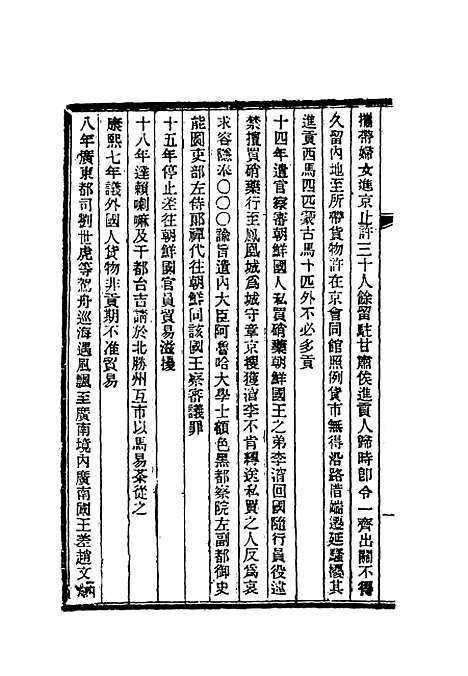 攜帶婦女進京止許三十人餘留駐甘肅俟進貢人歸時卽令一齊出關不得
久留內地至所帶貨物許在京會同館照例貨市無得沿路借端遷延騷擾其
進貢西馬四匹蒙古馬十匹外不必多貢
十四年遣官察審朝鮮國人私買硝藥朝鮮國王之弟李㴭回國隨行員役違
禁擅買硝藥行至鳳凰城爲城守章京搜獲㴭李不肯轉送私買之人反爲哀
求容隱添〇〇〇諭旨遣內大臣阿魯哈大學士額色黑都察院左副都御史
能圖吏部左侍郎禪代往朝鮮回該國王察審議罪
十五年停止差往朝鮮國官員貿易濫擾
十八年達賴喇嘛及干都台吉請於北勝州互市以馬易茶從之
康熙七年議外國人貨物非貢期不准貿易
八年廣東都司劉世虎等駕舟巡海遇風飄至廣南境內廣南國王差趙文